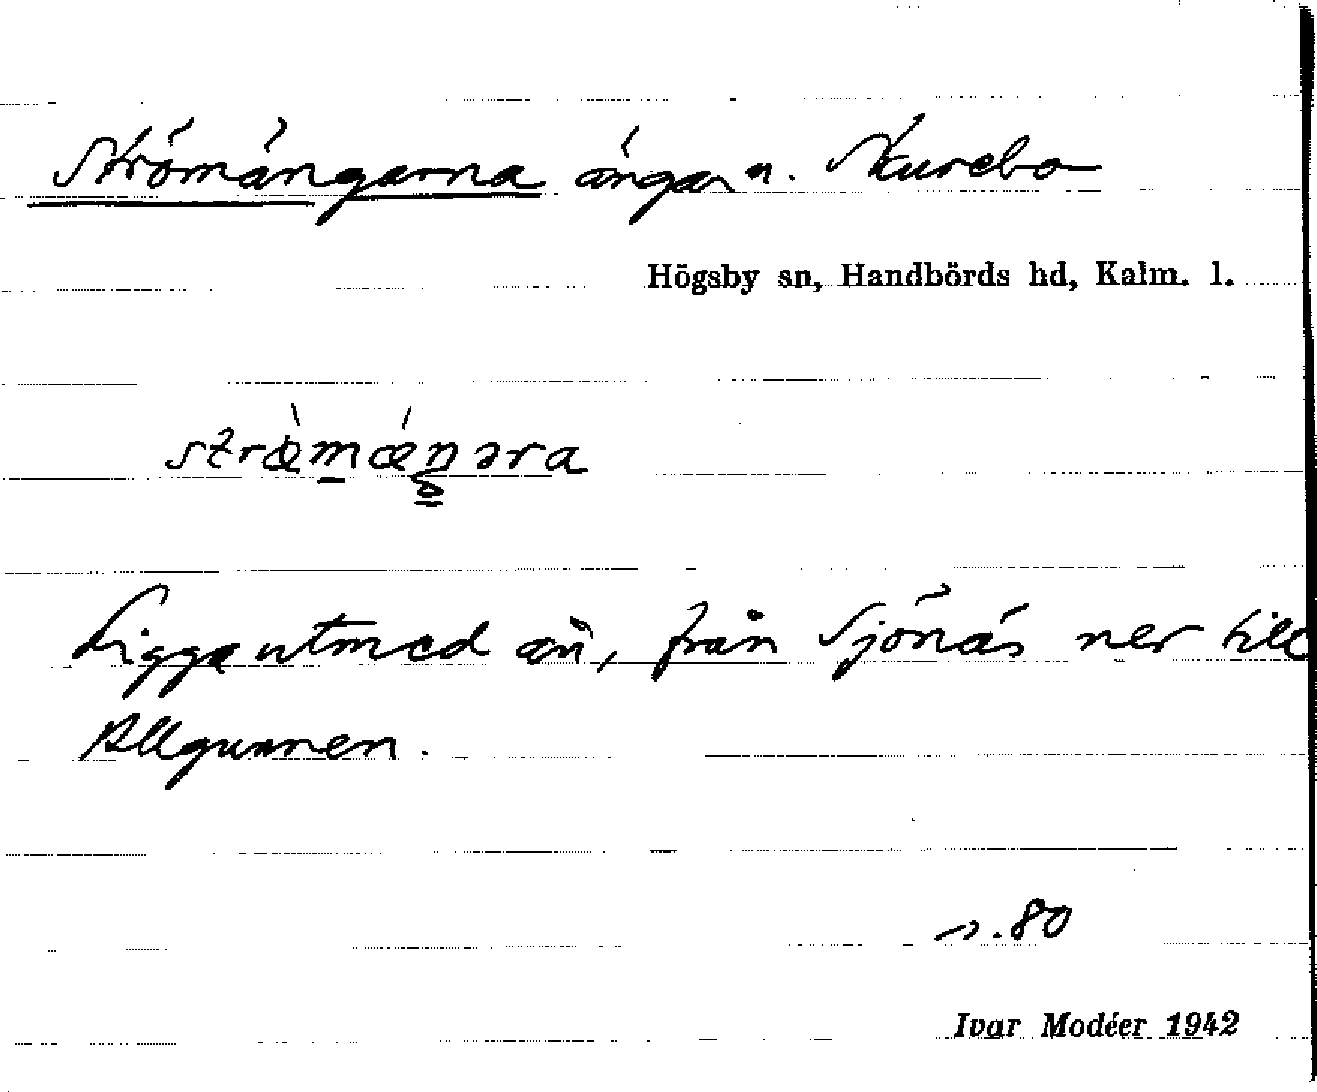 Strömängarna ängar n. Skurebo
Högsby sn, Handbörds hd, Kalm. l.
strǿmǽŋəra
Ligga utmed ån, från Sjönäs ner till
Allgunnen.
s. 80
Ivar Modéer 1942